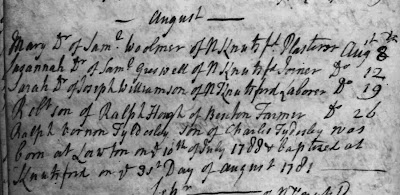 — August —
Mary Dr of Saml Woolmer of N Knutsfd Plasterer Augst 8
Susannah Dr of Saml Greswell of N Knutsfd Joiner Do 12
Sarah Dr of Joseph Williamson of N Knutsford Laborer Do 19
Robt son of Ralph Hough of Bexton Farmer Do 26
Ralph Vernon Tyldesley Son of Charles Tyldesley was
born at Lawton on ye 16th of July 1788 & baptized at
Knutsford on ye 31st Day of August 1781